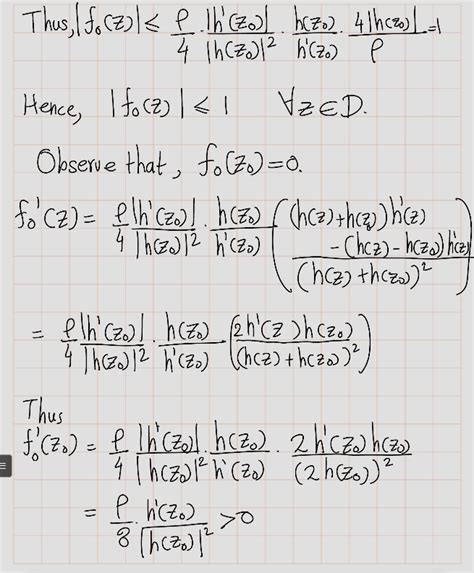 Thus, |f₀(z)| ≤ ρ/4 · |h'(z₀)|/|h(z₀)|² · h(z₀)/h'(z₀) · 4|h(z₀)|/ρ = 1
Hence, |f₀(z)| ≤ 1 ∀z∈D.
Observe that, f₀(z₀)=0.
f₀'(z) = ρ/4 |h'(z₀)|/|h(z₀)|² · h(z₀)/h'(z₀) ( ((h(z)+h(z₀))h'(z) - (h(z) - h(z₀))h'(z)) / (h(z)+h(z₀))² )
= ρ/4 |h'(z₀)|/|h(z₀)|² · h(z₀)/h'(z₀) ( 2h'(z)h(z₀) / (h(z)+h(z₀))² )
Thus
f₀'(z₀) = ρ/4 |h'(z₀)|/|h(z₀)|² · h(z₀)/h'(z₀) · 2h'(z₀)h(z₀)/(2h(z₀))²
= ρ/8 · h'(z₀)/|h(z₀)|² > 0